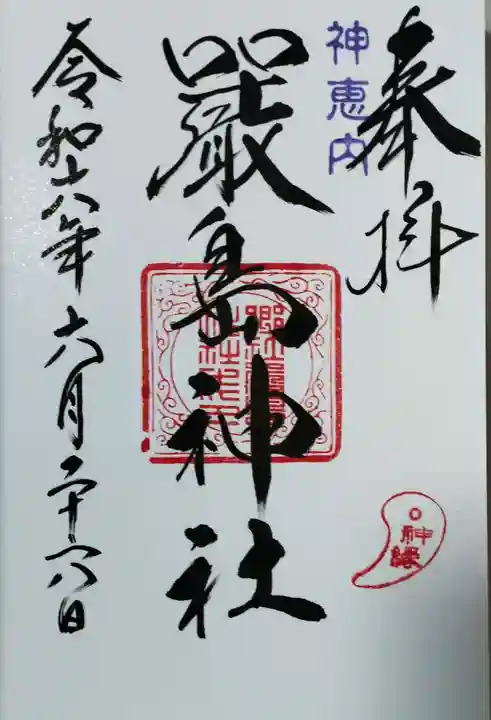 奉拝
神恵内
嚴島神社
令和六年六月二十六日
神縁